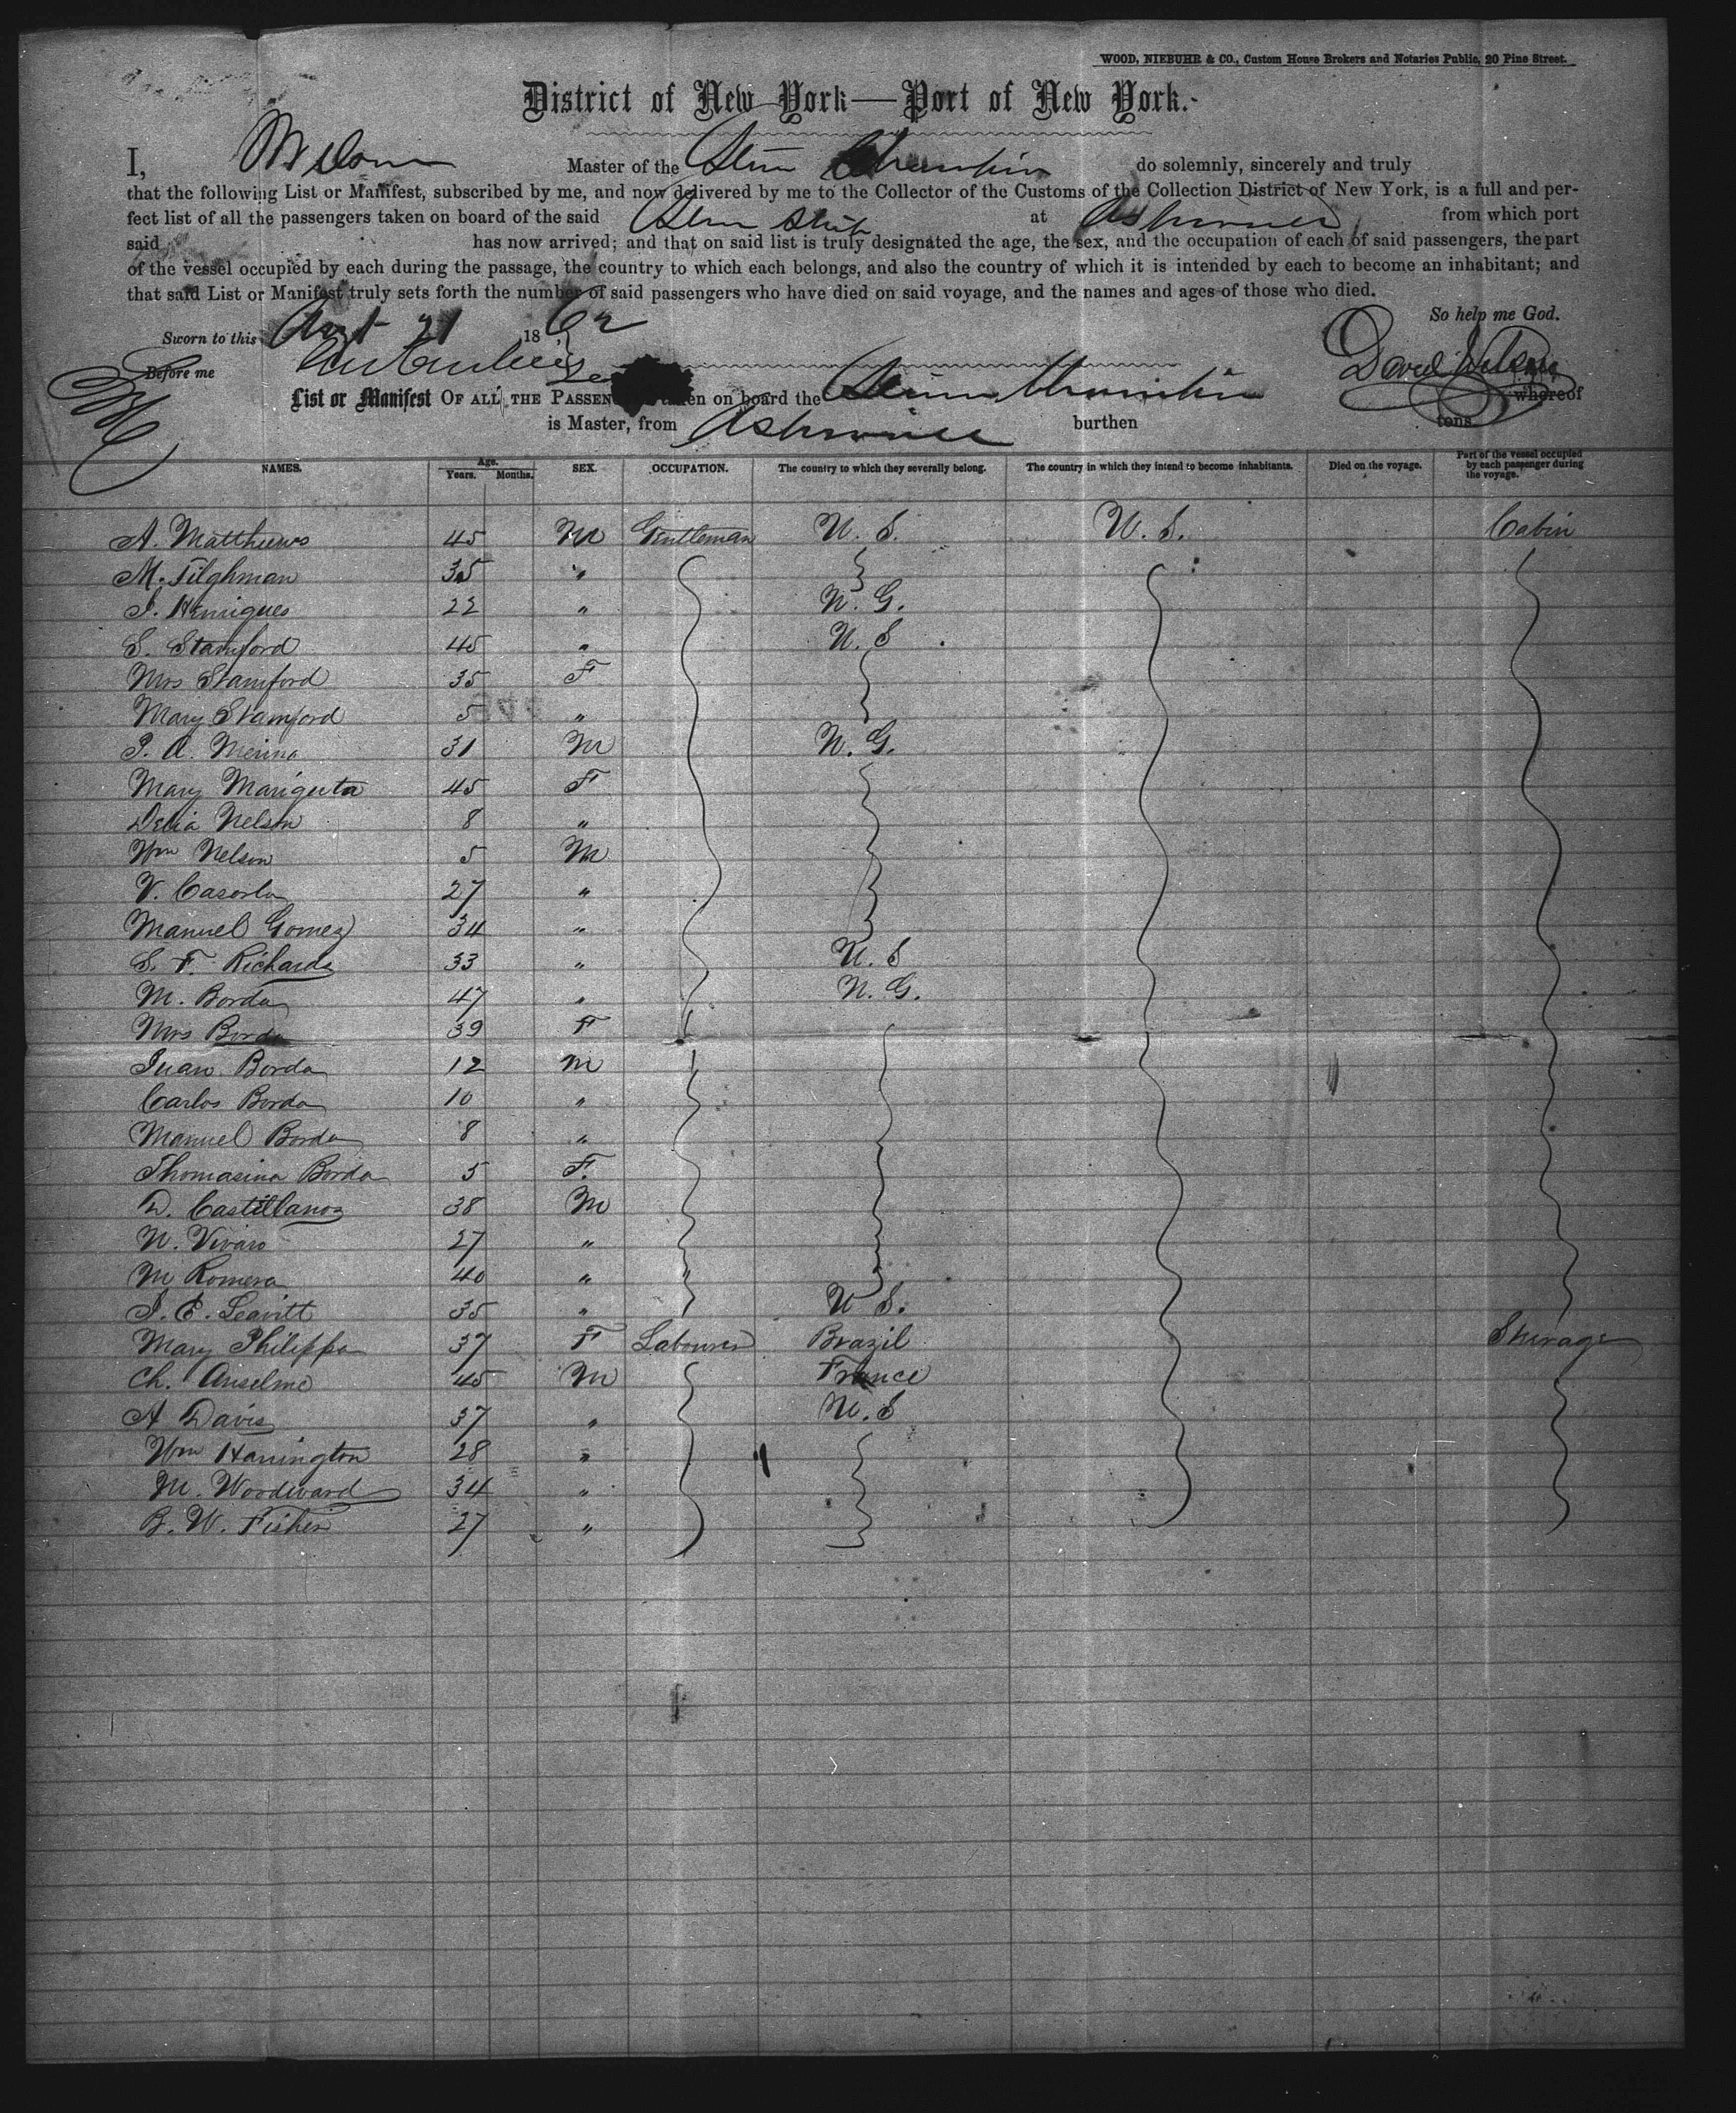 WOOD, NIEBUHR & CO., Custom House Brokers and Notaries Public, 20 Pine Street.
District of New York—Port of New York.
I, Wilson Master of the Stmr do solemnly, sincerely and truly
that the following List or Manifest, subscribed by me, and now delivered by me to the Collector of the Customs of the Collection District of New York, is a full and per-
fect list of all the passengers taken on board of the said Stm Ship at Aspinwall from which port
said has now arrived; and that on said list is truly designated the age, the sex, and the occupation of each of said passengers, the part
of the vessel occupied by each during the passage, the country to which each belongs, and also the country of which it is intended by each to become an inhabitant; and
that said List or Manifest truly sets forth the number of said passengers who have died on said voyage, and the names and ages of those who died.
So help me God.
Sworn to this 21 1862
Before me
David Wilson
List or Manifest OF ALL THE PASSEN en on board the whereof
is Master, from Aspinwall burthen tons.
NAMES. Age. Years. Months. SEX. OCCUPATION. The country to which they severally belong. The country in which they intend to become inhabitants. Died on the voyage. Part of the vessel occupied by each passenger during the voyage.
A. Matthews 45 M Gentleman U. S. U. S. Cabin
M. Tilghman 35 "
J. Henriques 22 " N. G.
S. Stamford 45 " U. S
Mrs Stamford 35 F
Mary Stamford 5 "
J. A. Merina 31 M N. G.
Mary Mariguta 45 F
Delia Nelson 8 "
Wm Nelson 5 M
V. Casorla 27 "
Manuel Gomez 34 "
S. F. Richards 33 " U. S
M. Borda 47 " N. G.
Mrs Borda 39 F
Juan Borda 12 M
Carlos Borda 10 "
Manuel Borda 8 "
Thomasina Borda 5 F.
D. Castillanos 38 M
N. Vivaro 27 "
M Romera 40 "
J. E. Leavitt 35 " U S.
Mary Philippa 37 F Labourer Brazil Steerage
Ch. Anselme 45 M France
A Davis 37 " U. S
Wm Harrington 28 "
M. Woodward 34 "
B. W. Fisher 27 "